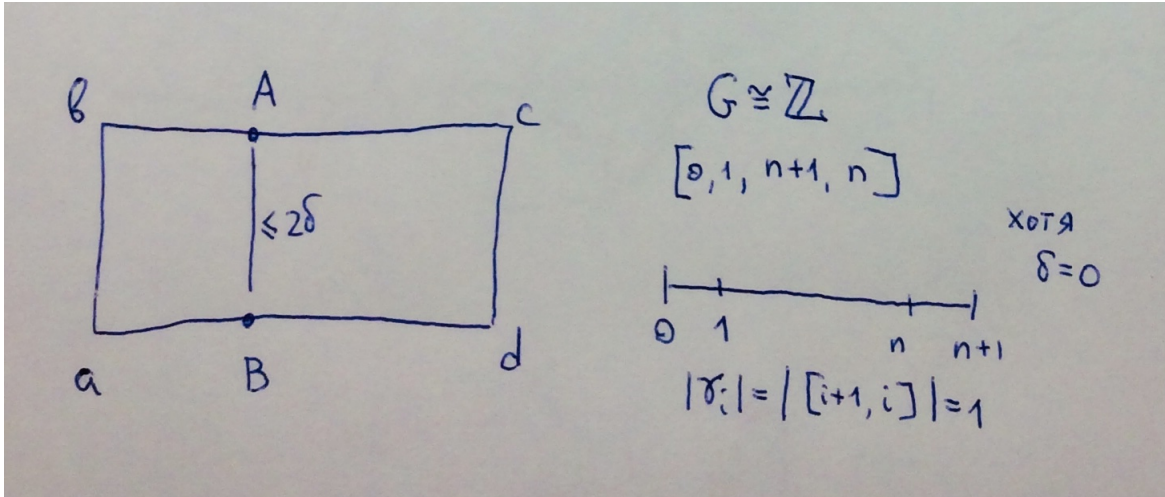 в A c
≤2δ
a B d
G ≅ ℤ
[0, 1, n+1, n]
хотя
δ=0
0 1 n n+1
|γᵢ| = | [i+1, i] | = 1